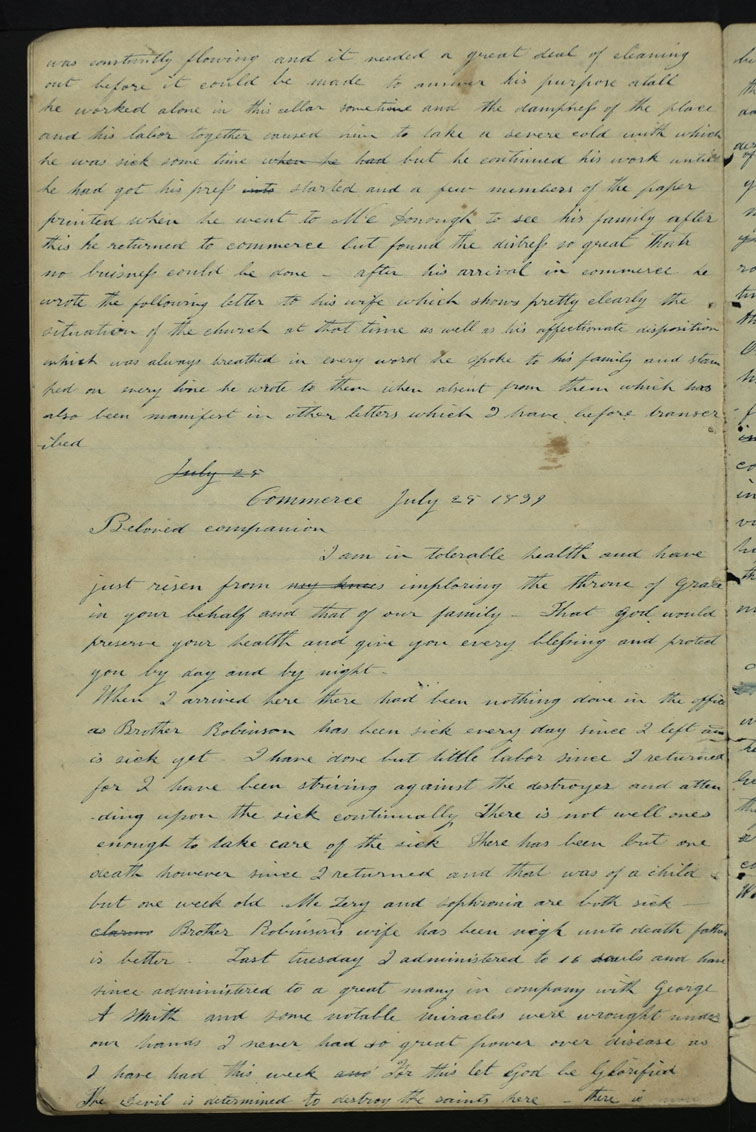 was constantly flowing and it needed a great deal of cleaning
out before it could be made to answer his purpose atall
he worked alone in this cellar sometime and the dampness of the place
and his labor together caused him to take a severe cold with which
he was sick some time when he had but he continued his work untill
he had got his press into started and a few numbers of the paper
printed when he went to Mc Donough to see his family after
this he returned to commerce but found the distress so great that
no buisness could be done - after his arrival in commerce he
wrote the following letter to his wife which shows pretty clearly the
situation of the church at that time as well as his affectionate disposition
which was always breathed in every word he spoke to his family and stam
ped on every line he wrote to them when absent from them which has
also been manifest in other letters which I have before transcr
-ibed
July 25
Commerce July 25 1839
Beloved companion
I am in tolerable health and have
just risen from my knees imploring the throne of Grace
in your behalf and that of our family - That God would
preserve your health and give you every blessing and protect
you by day and by night -
When I arrived here there had been nothing done in the office
as Brother Robinson has been sick every day since I left and
is sick yet - I have done but little labor since I returned
for I have been striving against the destroyer and atten
-ding upon the sick continually There is not well ones
enough to take care of the sick There has been but one
death however since I returned and that was of a child
but one week old. Mc Lery and Sophronia are both sick -
Brother Robinson's wife has been nigh unto death father
is better. Last tuesday I administered to 16 souls and have
since administered to a great many in company with George
A Smith and some notable miracles were wrought under
our hands I never had so great power over disease as
I have had this week and For this let God be Glorified
The Devil is determined to destroy the saints here - there is